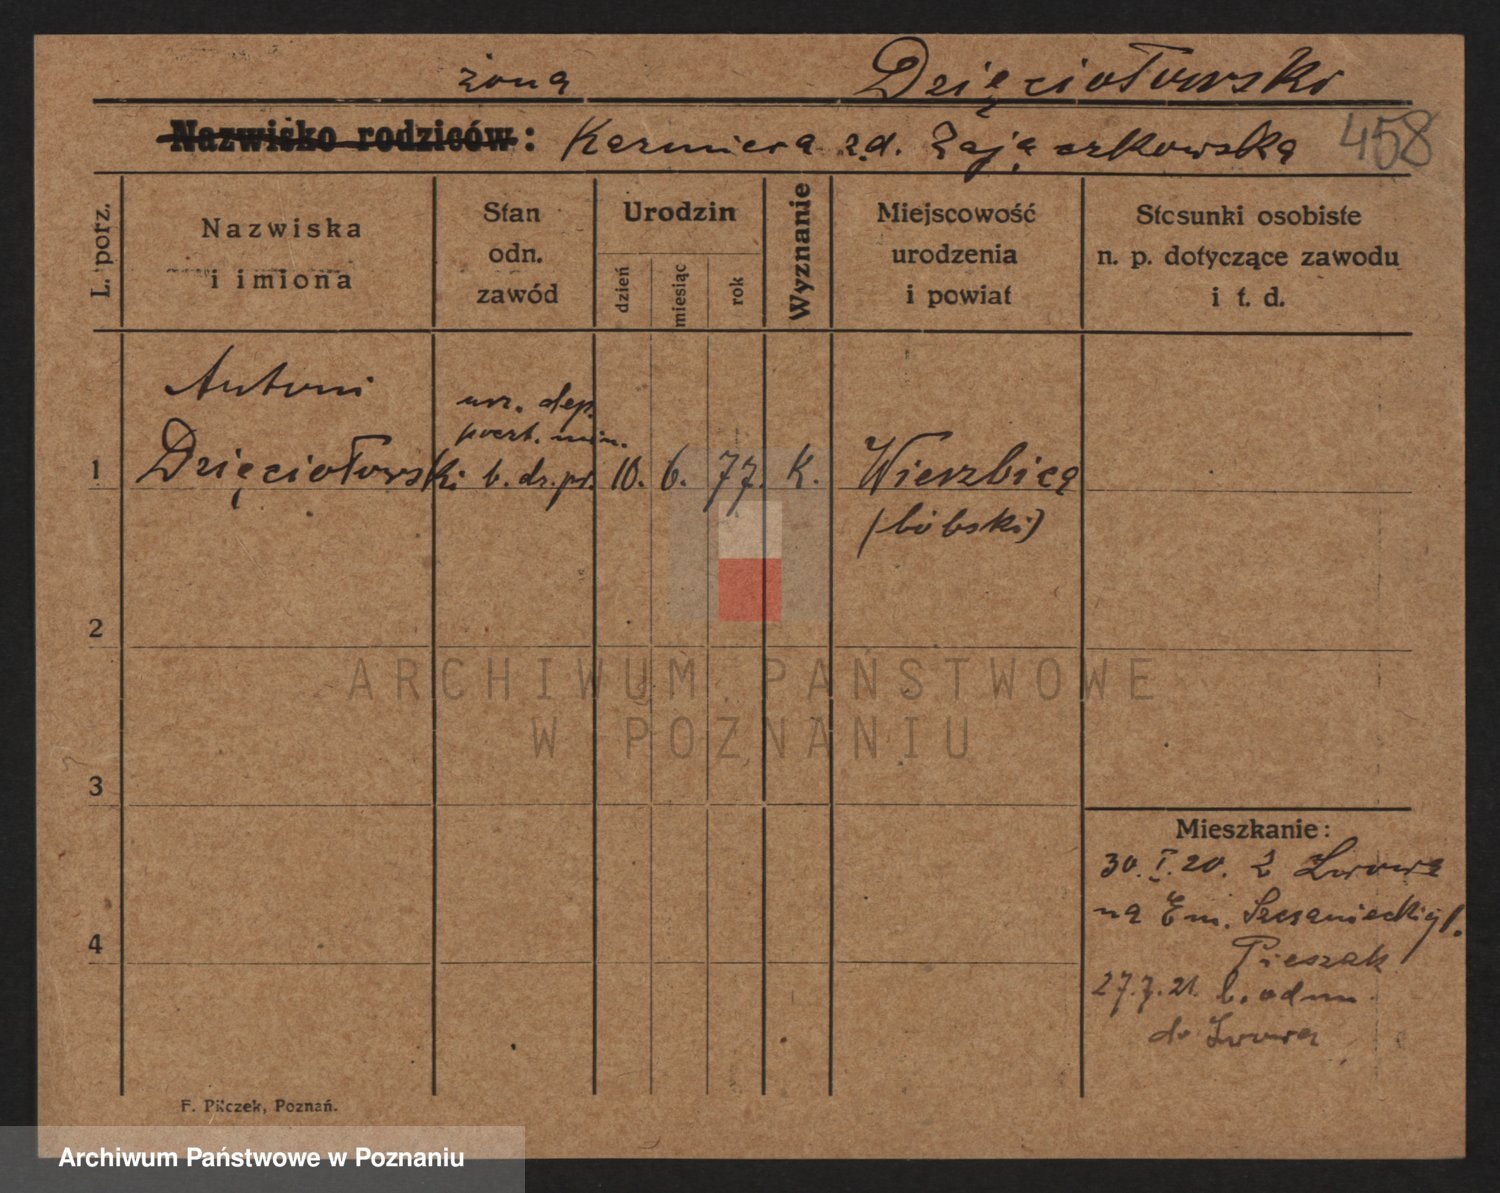 żona Dzięciołowski
Nazwisko rodziców: z.d. 458
L. porz.
Nazwiska
i imiona
Stan
odn.
zawód
Urodzin
dzień
miesiąc
rok
Wyznanie
Miejscowość
urodzenia
i powiat
Stosunki osobiste
n. p. dotyczące zawodu
i t. d.
Antoni
urz. dep.
poczt. min.
1 Dzięciołowski b. dz. pr. 10. 6. 77. K. Wierzbica
(bóbski)
2
ARCHIWUM PAŃSTWOWE
W POZNANIU
3
Mieszkanie:
30. I. 20. Z Lwowa
na Em. Szczanieckiej 1.
Pieszak
4
27.7.21. b. odm.
do Lwowa
F. Pilczek, Poznań.
Archiwum Państwowe w Poznaniu